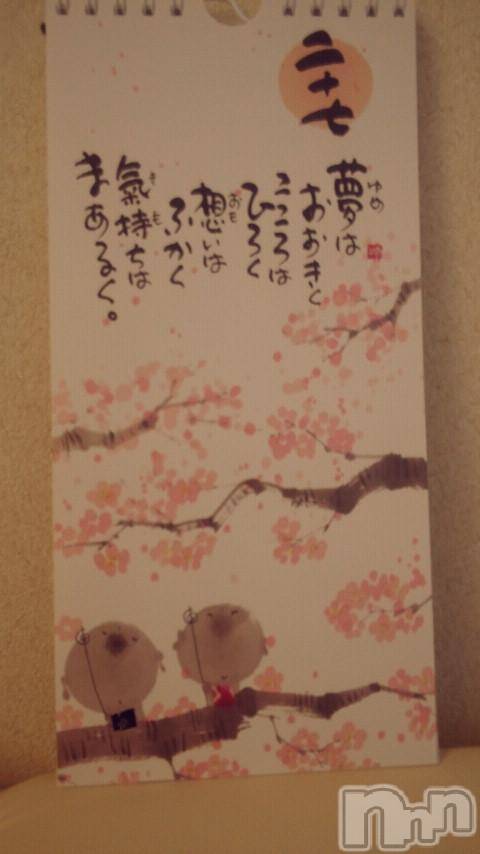 二十七
夢は
おおきく
こころは
ひろく
想いは
ふかく
氣持ちは
まあるく。
ゆめ
おも
きも
nnn